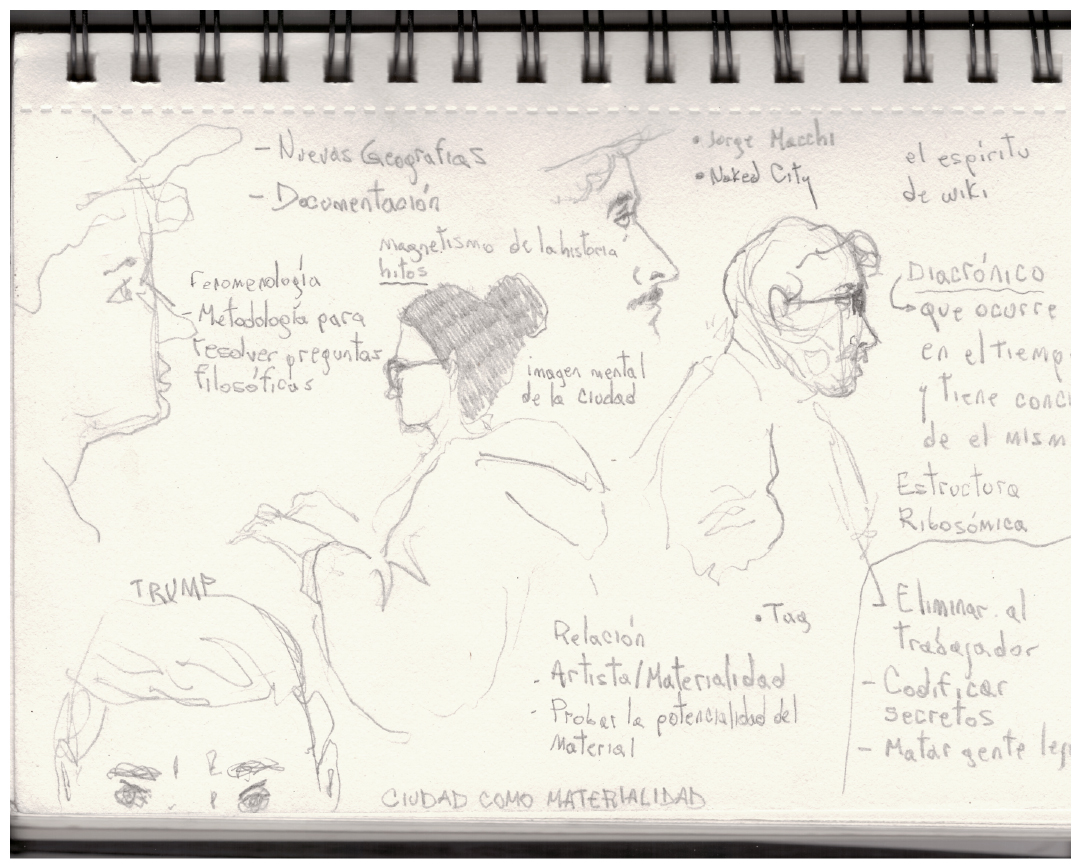 - Nuevas Geografías
- Documentación
magnetismo de la historia
hitos
Fenomenología
- Metodología para
resolver preguntas
filosóficas
imagen mental
de la ciudad
• Jorge Macchi
• Naked City
el espíritu
de wiki
Diacrónico
que ocurre
en el tiemp
y tiene conci
de el mism
Estructura
Ribosómica
Eliminar al
trabajador
- Codificar
secretos
- Matar gente
• Tag
Relación
- Artista/Materialidad
- Probar la potencialidad del
Material
TRUMP
CIUDAD COMO MATERIALIDAD